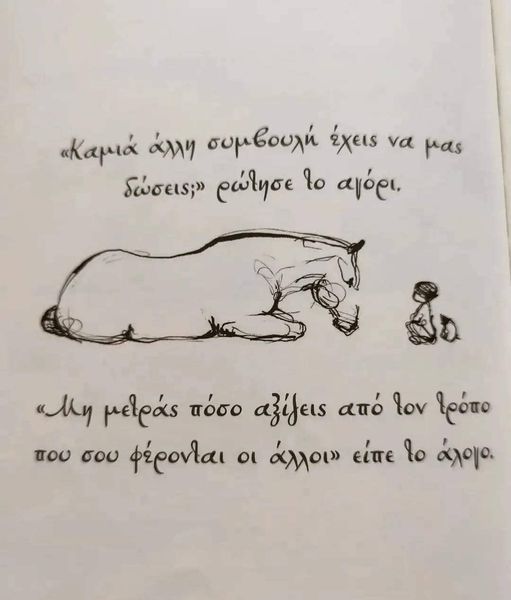 «Καμιά άλλη συμβουλή έχεις να μας
δώσεις;» ρώτησε το αγόρι.
«Μη μετράς πόσο αξίζεις από τον τρόπο
που σου φέρονται οι άλλοι» είπε το άλογο.